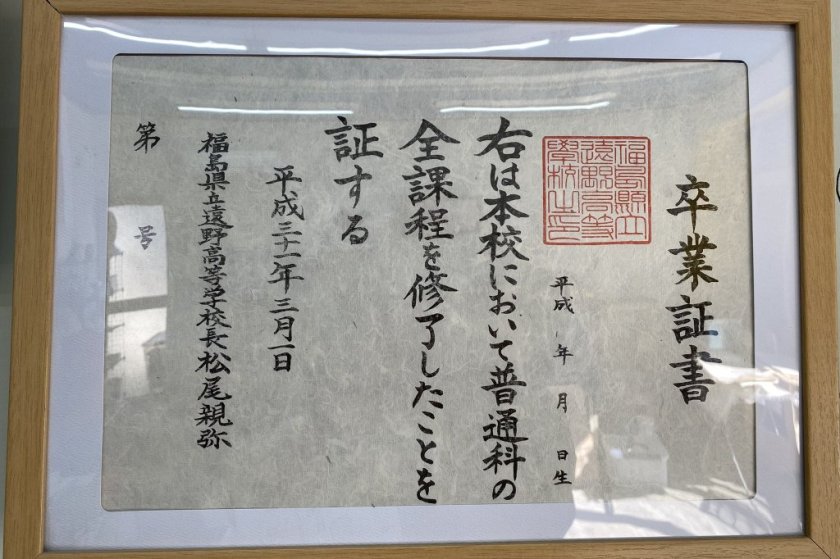 卒業証書
福島縣立
遠野高等
學校之印
平成 年 月 日生
右は本校において普通科の
全課程を修了したことを
証する
平成三十一年三月一日
福島県立遠野高等学校長松尾親弥
第 号